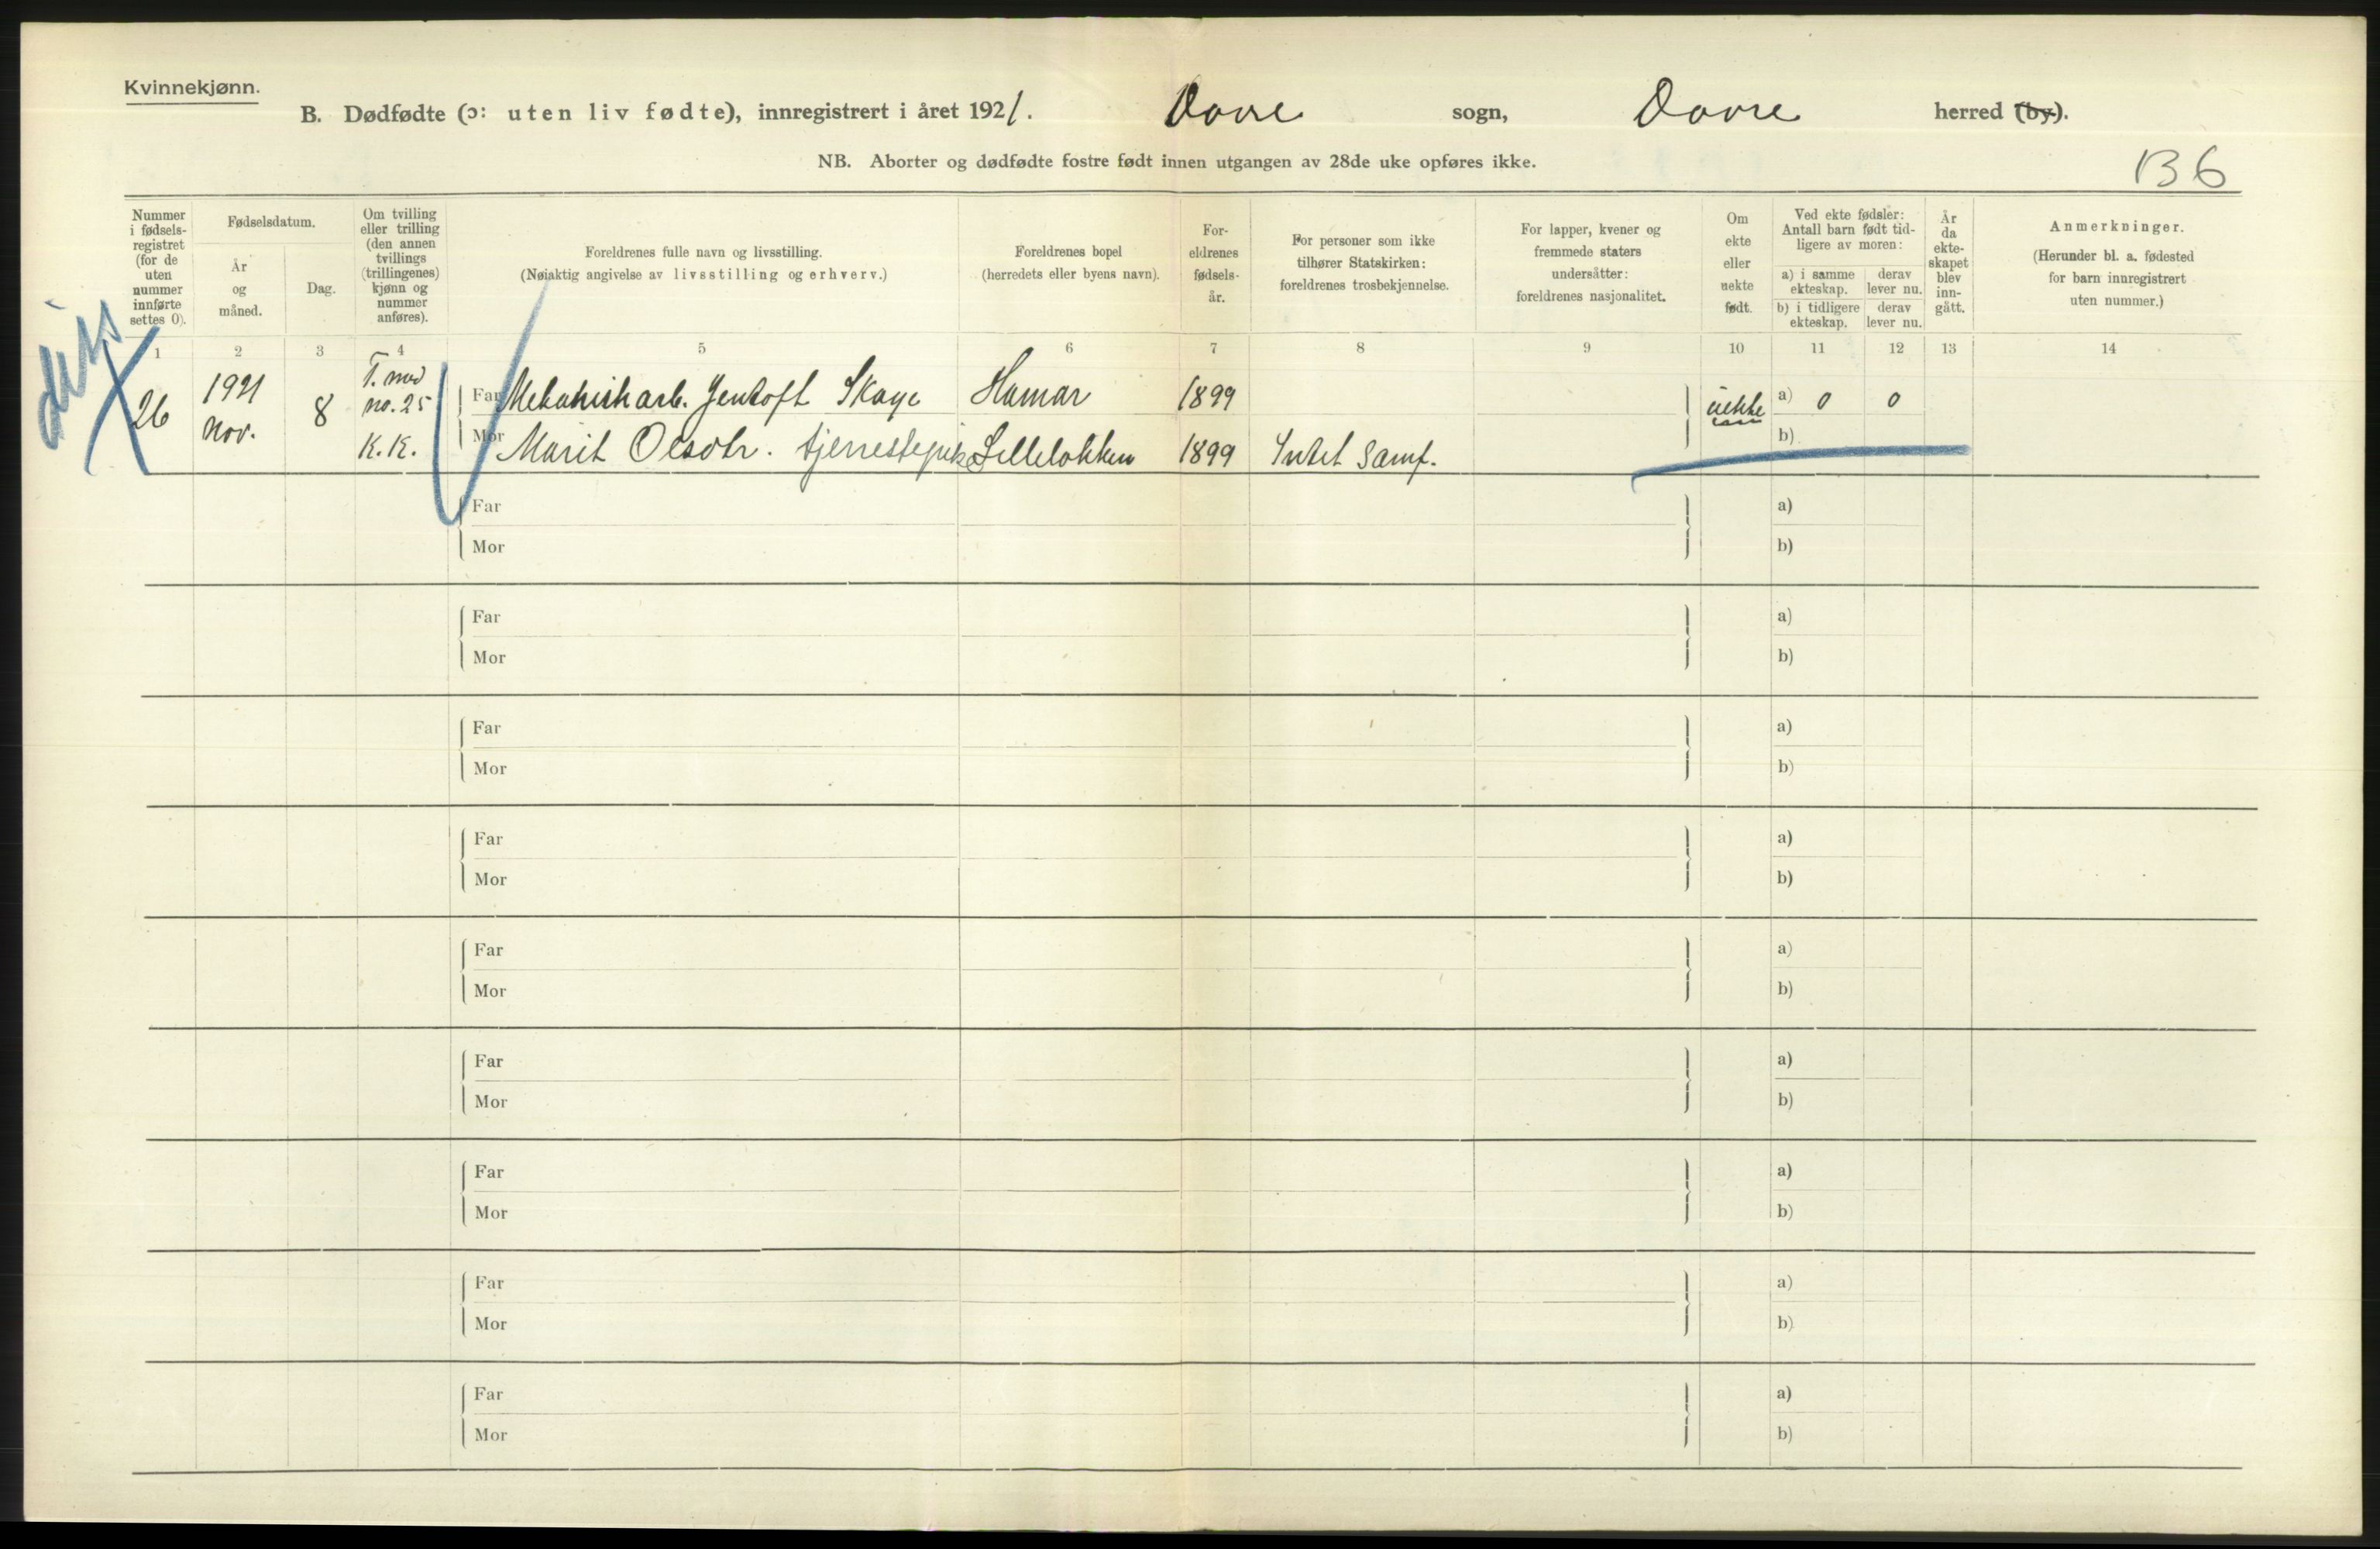 Kvinnekjønn.
B. Dødfødte (ɔ: uten liv fødte), innregistrert i året 1921. Dovre sogn, Dovre herred (by).
NB. Aborter og dødfødte fostre født innen utgangen av 28de uke opføres ikke.
136
Nummer i fødsels-registret (for de uten nummer innførte settes 0).
Fødselsdatum.
År og måned.
Dag.
Om tvilling eller trilling (den annen tvillings (trillingenes) kjønn og nummer anføres).
Foreldrenes fulle navn og livsstilling.
(Nøiaktig angivelse av livsstilling og erhverv.)
Foreldrenes bopel
(herredets eller byens navn).
For-eldrenes fødsels-år.
For personer som ikke tilhører Statskirken: foreldrenes trosbekjennelse.
For lapper, kvener og fremmede staters undersåtter: foreldrenes nasjonalitet.
Om ekte eller uekte født.
Ved ekte fødsler: Antall barn født tid-ligere av moren:
a) i samme ekteskap.
derav lever nu.
b) i tidligere ekteskap.
derav lever nu.
År da ekte-skapet blev inn-gått.
Anmerkninger.
(Herunder bl. a. fødested for barn innregistrert uten nummer.)
1 2 3 4 5 6 7 8 9 10 11 12 13 14
26
1921 nov.
8
T. med no. 25 K.K.
Far Mekanisk arb. Jentoft Skaye Hamar 1899 uekte a) 0 0
Mor Marit Olsdtr. tjenestepike Lilleløkken 1899 Intet samf. b)
Far a)
Mor b)
Far a)
Mor b)
Far a)
Mor b)
Far a)
Mor b)
Far a)
Mor b)
Far a)
Mor b)
Far a)
Mor b)
Far a)
Mor b)
Far a)
Mor b)